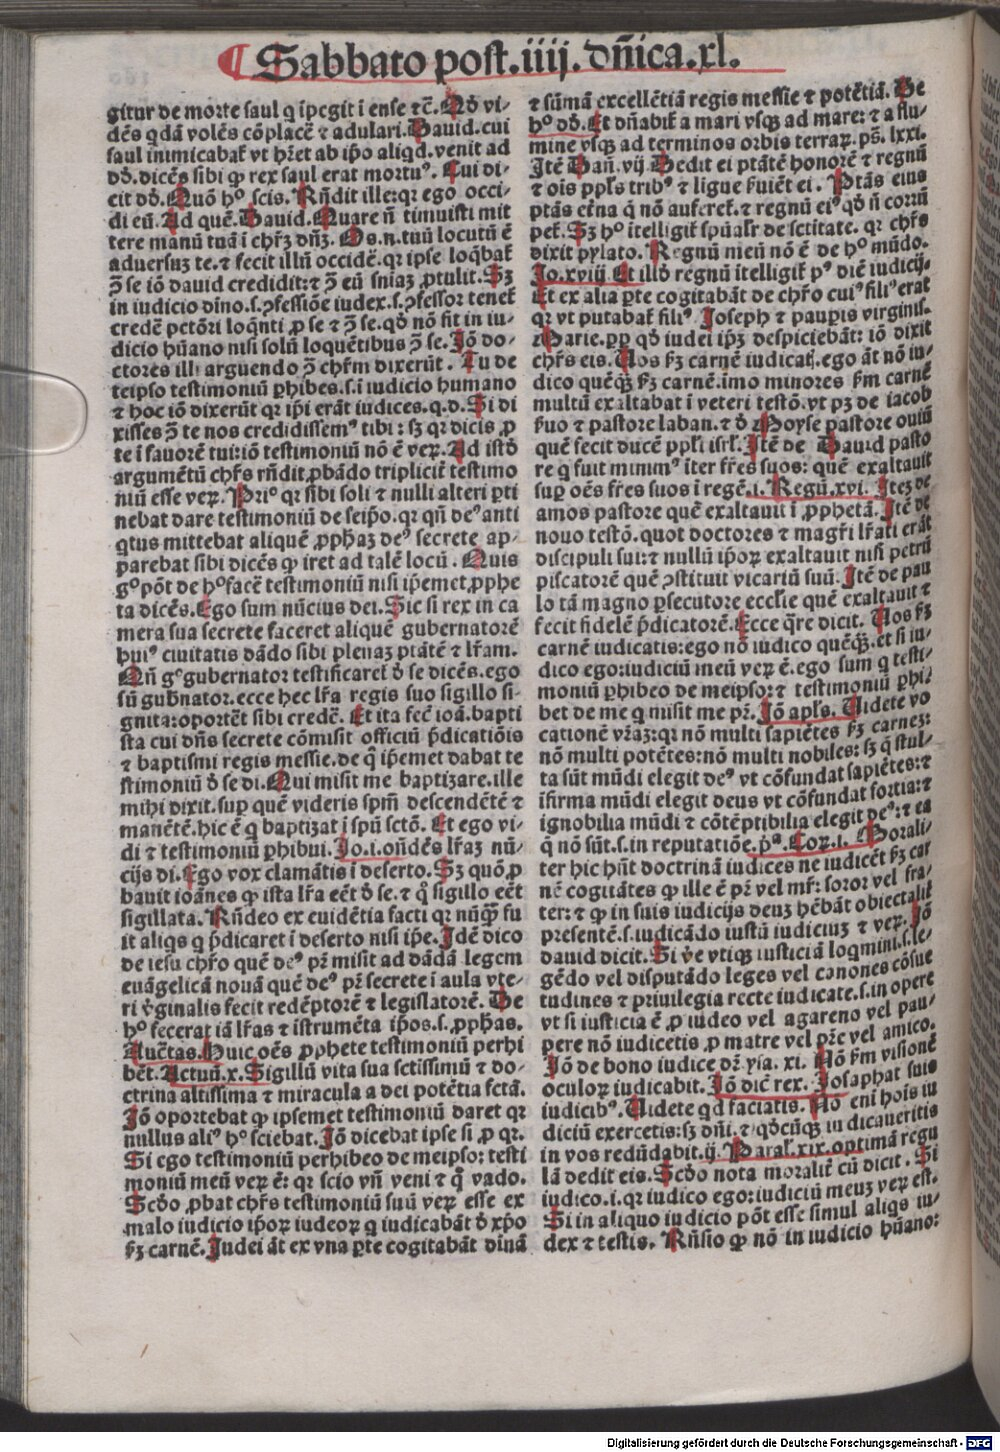 ¶ Sabbato post.iiij.dñica.xl.
gitur de morte saul q īpegit ī ense ⁊c̄. Aḋ vi-
dēs qdā volēs cōplacē ⁊ adulari. Dauid. cui
saul inimicabaf vt hr̄et ab ip̄o aliqd. venit ad
dd. dicēs sibi ꝙ rex saul erat mortuꝰ. Cui di-
cit dd. Quō hͦ scis. Rn̄dit ille: qꝛ ego occi-
di eū. Ad quē. Dauid. Quare n̄ timuisti mit
tere manū tuā ī chr̄ꝫ dn̄ꝫ. Os. n. tuū locutū ē
aduersuꝫ te. ⁊ fecit illū occidē. qꝛ ipse loq̄baf
ꝯ se iō dauid credidit: ⁊ ꝯ eū sniaꝫ ꝓtulit. Sꝫ
in iudicio dīno. s. ꝯfessiōe iudex. s. ꝯfessor tenet
credē pctōri loq̄nti ꝓ se ⁊ ꝯ se. qḋ nō fit in iu-
dicio hūano nisi solū loquētibus ꝯ se. Iō do-
ctores illi arguendo ꝯ chr̄m dixerūt. Tu de
teipso testimoniū ꝑhibes. s. ī iudicio humano
⁊ hoc iō dixerūt qꝛ ip̄i erāt iudices. q. d. Si di
xisses ꝯ te nos credidissemꝰ tibi: sꝫ qꝛ dicis ꝓ
te ī fauorē tui: iō testimoniū nō ē veꝝ. Ad istḋ
argumētū chr̄s rn̄dit ꝓbādo triplicit̄ testimo
niū esse veꝝ. Priͦ qꝛ sibi soli ⁊ nulli alteri ꝑti
nebat dare testimoniū de seip̄o. qꝛ qn̄ deꝰ anti
qtus mittebat aliquē ꝓpḣaꝫ deꝰ secrete ap-
parebat sibi dicēs ꝙ iret ad talē locū. Quis
gͦ pōt de hͦ facē testimoniū nisi ip̄emet ꝓphe
ta dicēs. Ego sum nūcius dei. Sic si rex in ca
mera sua secrete faceret aliquē gubernatorē
huiꝰ ciuitatis dādo sibi plenaꝫ ptātē ⁊ lr̄am.
Qn̄ gͦ gubernator testificaret ḋ se dicēs. ego
sū gub̄nator. ecce hec lr̄a regis suo sigillo si-
gnita: oportēt sibi credē. Et ita fec̄ ioā. bapti
sta cui dn̄s secrete cōmisit officiū p̄dicatiōis
⁊ baptismi regis messie. de q̇ ip̄emet dabat te
stimoniū ḋ se di. Qui misit me baptizare. ille
mihi dixit. suꝑ quē videris sp̄m descendētē ⁊
manētē. hic ē q baptizat ī spū sctō. Et ego vi-
di ⁊ testimoniū ꝑhibui. Io. i. ondēs lr̄aꝫ nū-
cijs di. Ego vox clamātis ī deserto. Sꝫ quō ꝓ
bauit ioānes ꝙ ista lr̄a eēt ḋ se. ⁊ q̇ sigillo eēt
sigillata. Rn̄deo ex euidētia facti qꝛ nūq̄ fu
it aliqs q p̄dicaret ī deserto nisi ip̄e. Idē dico
de iesu chr̄o quē deꝰ pr̄ misit ad dādā legem
euāgelicā nouā quē deꝰ pr̄ secrete ī aula vte-
ri v̇ginalis fecit redēptorē ⁊ legislatorē. De
hͦ fecerat iā lr̄as ⁊ īstrumēta ip̄os. s. ꝓpḣas.
Auc̄tas. Huic oēs ꝓphete testimoniū perhi
bēt. Actuū. x. Sigillū vita sua sctissimū ⁊ do-
ctrina altissima ⁊ miracula a dei potētia fctā.
Iō oportebat ꝙ ipsemet testimoniū daret qꝛ
nullus aliꝰ hͦ sciebat. Iō dicebat ipse si ꝓ qꝛ.
Si ego testimoniū perhibeo de meipso: testi
moniū meū veꝝ ē: qꝛ scio vn̄ veni ⁊ q̇ vado.
Scḋo ꝓbat chr̄s testimoniū suū veꝝ esse ex
malo iudicio ip̄oꝝ iudeoꝝ q iudicabāt ḋ xp̄o
ẜꝫ carnē. Iudei āt ex vna ꝑte cogitabāt dīnā
⁊ sūmā excellētiā regis messie ⁊ potētiā. De
hͦ dd. Et dn̄abit̄ a mari vsqꝫ ad mare: ⁊ a flu-
mine vsqꝫ ad terminos orbis terraꝝ. ps̄. lxxi.
Itē Dan̄. vij. Dedit ei ptātē honorē ⁊ regnū
⁊ ois ppl̄s tribꝰ ⁊ ligue ẜuiēt ei. Ptās eius
ptās et̄na q̄ nō auferet̄. ⁊ regnū eiꝰ qḋ n̄ corrū
pet̄. Sꝫ hͦ ītelligit̄ spūal̄r de sctitate. qꝛ chr̄s
dixit pylato. Regnū meū nō ē de hͦ mūdo.
Io. xviij. Et illḋ regnū ītelligit̄ pꝰ diē iudicij.
Et ex alia ꝑte cogitabāt de chr̄o cuiꝰ filiꝰ erat
qꝛ vt putabat̄ filiꝰ. Ioseph ⁊ pauꝑis virginis.
Marie. ꝓp qḋ iudei ip̄ꝫ despiciebāt: iō dixit
chr̄s eis. Uos ẜꝫ carnē iudicat̄. ego āt nō iu-
dico quēqꝫ ẜꝫ carnē. īmo minores ẜm carnē
multū exaltabat ī veteri testō. vt pꝫ de iacob
ẜuo ⁊ pastore laban. ⁊ ḋ Moyse pastore ouiū
quē fecit ducē ppl̄i isrl̄. Itē de Dauid pasto
re q fuit minimꝰ īter fr̄es suos: quē exaltauit
suꝑ oēs fr̄es suos ī regē. i. Regū. xvi. Iteꝫ de
amos pastore quē exaltauit ī ꝓphetā. Itē de
nouo testō. quot doctores ⁊ magr̄i lr̄ati erāt
discipuli sui: ⁊ nullū ip̄oꝝ exaltauit nisi petrū
piscatorē quē ꝯstituit vicariū suū. Itē de pau
lo tā magno ꝑsecutore eccl̄ie quē exaltauit ⁊
fecit fidelē p̄dicatorē. Ecce q̄re dicit. Uos ẜꝫ
carnē iudicatis: ego nō iudico quēqꝫ. et si iu-
dico ego: iudiciū meū veꝝ ē. ego sum q testi-
moniū ꝑhibeo de meipso: ⁊ testimoniū ꝑhi-
bet de me q misit me pr̄. Iō apl̄s. Uidete vo
cationē vr̄aꝫ: qꝛ nō multi sapiētes ẜꝫ carneꝫ:
nō multi potētes: nō multi nobiles: sꝫ q̄ stul-
ta sūt mūdi elegit deꝰ vt cōfundat sapiētes: ⁊
īfirma mūdi elegit deus vt cōfundat fortia: ⁊
ignobilia mūdi ⁊ cōtēptibilia elegit deꝰ: ⁊ ea
q̄ nō sūt. s. in reputatiōe. pͣ. Coꝝ. i. Morali-
ter hic hn̄t doctrinā iudices ne iudicēt ẜꝫ car
nē cogitātes ꝙ ille ē pr̄ vel mr̄: soror vel fra-
ter: ⁊ ꝙ in suis iudicijs deuꝫ hēbāt obiectalit̄
presentē. s. iudicādo iustū iudiciuꝫ ⁊ veꝝ. Iō
dauid dicit. Si v̇e vtiqꝫ iusticiā loqmini. s. le-
gēdo vel disputādo leges vel canones cōsue
tudines ⁊ priuilegia recte iudicate. s. in opere
vt si iusticia ē ꝓ iudeo vel agareno vel pau-
pere nō iudicetis ꝓ matre vel pr̄e vel amico.
Iō de bono iudice dr̄. ysa. xi. Nō ẜm visionē
oculoꝝ iudicabit. Iō dic̄ rex. Iosaphat suis
iudicibꝰ. Uidete qd faciatis. Nō eni hois iu
diciū exercetis: sꝫ dn̄i. ⁊ qḋcūqꝫ iudicaueritis
in vos redūdabit. ij. Paral̄. xix. optimā regu
lā dedit eis. Scḋo nota moralit̄ cū dicit. Si
iudico. i. qꝛ iudico ego: iudiciū meuꝫ veꝝ est.
Si in aliquo iudicio pōt esse simul aliqs iu-
dex ⁊ testis. Rn̄sio ꝙ nō in iudicio hūano:
Digitalisierung gefördert durch die Deutsche Forschungsgemeinschaft - DFG